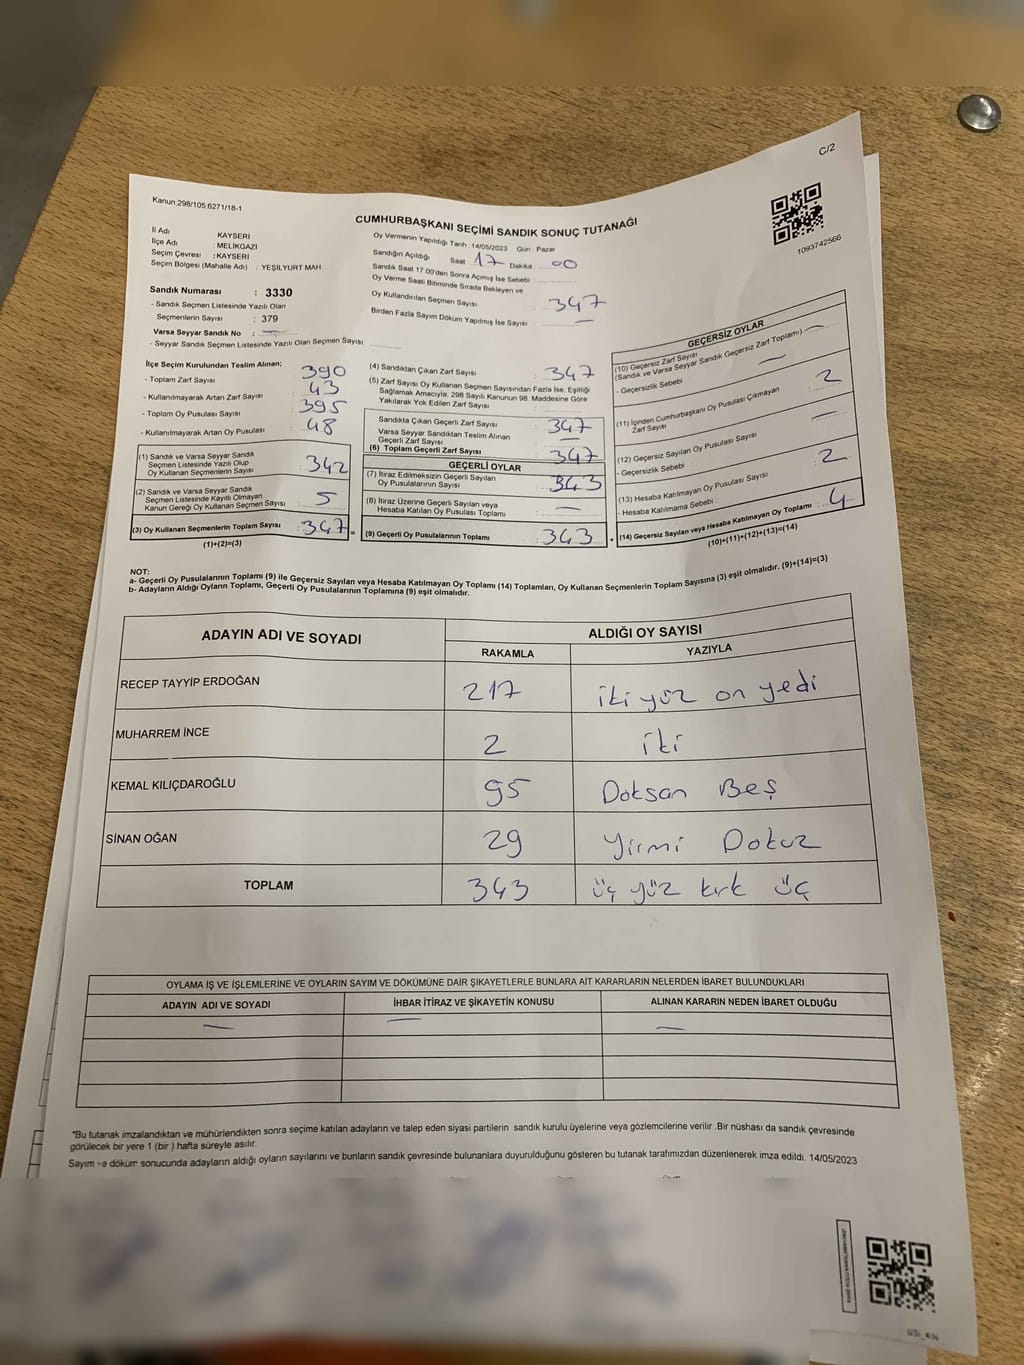 C/2
Kanun:298/105,6271/18-1
CUMHURBAŞKANI SEÇİMİ SANDIK SONUÇ TUTANAĞI
1093742566
İl Adı KAYSERİ
İlçe Adı : MELİKGAZİ
Seçim Çevresi : KAYSERİ
Seçim Bölgesi (Mahalle Adı) : YEŞİLYURT MAH
Sandık Numarası : 3330
- Sandık Seçmen Listesinde Yazılı Olan
Seçmenlerin Sayısı : 379
Varsa Seyyar Sandık No : —
- Seyyar Sandık Seçmen Listesinde Yazılı Olan Seçmen Sayısı
Oy Vermenin Yapıldığı Tarih : 14/05/2023 Gün : Pazar
Sandığın Açıldığı Saat 17 Dakika 00
Sandık Saat 17.00'den Sonra Açımış İse Sebebi :
Oy Verme Saati Bitiminde Sırada Bekleyen ve
Oy Kullandırılan Seçmen Sayısı : 347
Birden Fazla Sayım Döküm Yapılmış İse Sayısı : —
İlçe Seçim Kurulundan Teslim Alınan;
- Toplam Zarf Sayısı : 390
- Kullanılmayarak Artan Zarf Sayısı : 43
- Toplam Oy Pusulası Sayısı : 395
- Kullanılmayarak Artan Oy Pusulası : 48
(1) Sandık ve Varsa Seyyar Sandık
Seçmen Listesinde Yazılı Olup
Oy Kullanan Seçmenlerin Sayısı : 342
(2) Sandık ve Varsa Seyyar Sandık
Seçmen Listesinde Kayıtlı Olmayan
Kanun Gereği Oy Kullanan Seçmen Sayısı : 5
(3) Oy Kullanan Seçmenlerin Toplam Sayısı : 347 =
(1)+(2)=(3)
(4) Sandıktan Çıkan Zarf Sayısı : 347
(5) Zarf Sayısı Oy Kullanan Seçmen Sayısından Fazla İse, Eşitliği
Sağlamak Amacıyla; 298 Sayılı Kanunun 98. Maddesine Göre
Yakılarak Yok Edilen Zarf Sayısı :
Sandıkta Çıkan Geçerli Zarf Sayısı : 347
Varsa Seyyar Sandıktan Teslim Alınan
Geçerli Zarf Sayısı : —
(6) Toplam Geçerli Zarf Sayısı : 347
GEÇERLİ OYLAR
(7) İtiraz Edilmeksizin Geçerli Sayılan
Oy Pusulalarının Sayısı : 343
(8) İtiraz Üzerine Geçerli Sayılan veya
Hesaba Katılan Oy Pusulası Toplamı : —
(9) Geçerli Oy Pusulalarının Toplamı : 343 +
GEÇERSİZ OYLAR
(10) Geçersiz Zarf Sayısı
(Sandık ve Varsa Seyyar Sandık Geçersiz Zarf Toplamı) —
- Geçersizlik Sebebi : —
(11) İçinden Cumhurbaşkanı Oy Pusulası Çıkmayan
Zarf Sayısı : 2
(12) Geçersiz Sayılan Oy Pusulası Sayısı
- Geçersizlik Sebebi : 2
(13) Hesaba Katılmayan Oy Pusulası Sayısı
- Hesaba Katılmama Sebebi :
(14) Geçersiz Sayılan veya Hesaba Katılmayan Oy Toplamı : 4
(10)+(11)+(12)+(13)=(14)
NOT:
a- Geçerli Oy Pusulalarının Toplamı (9) ile Geçersiz Sayılan veya Hesaba Katılmayan Oy Toplamı (14) Toplamları, Oy Kullanan Seçmenlerin Toplam Sayısına (3) eşit olmalıdır. (9)+(14)=(3)
b- Adayların Aldığı Oyların Toplamı, Geçerli Oy Pusulalarının Toplamına (9) eşit olmalıdır.
ADAYIN ADI VE SOYADI ALDIĞI OY SAYISI
RAKAMLA YAZIYLA
RECEP TAYYİP ERDOĞAN 217 iki yüz on yedi
MUHARREM İNCE 2 iki
KEMAL KILIÇDAROĞLU 95 Doksan Beş
SİNAN OĞAN 29 Yirmi Dokuz
TOPLAM 343 üç yüz kırk üç
OYLAMA İŞ VE İŞLEMLERİNE VE OYLARIN SAYIM VE DÖKÜMÜNE DAİR ŞİKAYETLERLE BUNLARA AİT KARARLARIN NELERDEN İBARET BULUNDUKLARI
ADAYIN ADI VE SOYADI İHBAR İTİRAZ VE ŞİKAYETİN KONUSU ALINAN KARARIN NEDEN İBARET OLDUĞU
— — —
*Bu tutanak imzalandıktan ve mühürlendikten sonra seçime katılan adayların ve talep eden siyasi partilerin sandık kurulu üyelerine veya gözlemcilerine verilir .Bir nüshası da sandık çevresinde
görülecek bir yere 1 (bir ) hafta süreyle asılır.
Sayım ve döküm sonucunda adayların aldığı oyların sayılarını ve bunların sandık çevresinde bulunanlara duyurulduğunu gösteren bu tutanak tarafımızdan düzenlenerek imza edildi. 14/05/2023